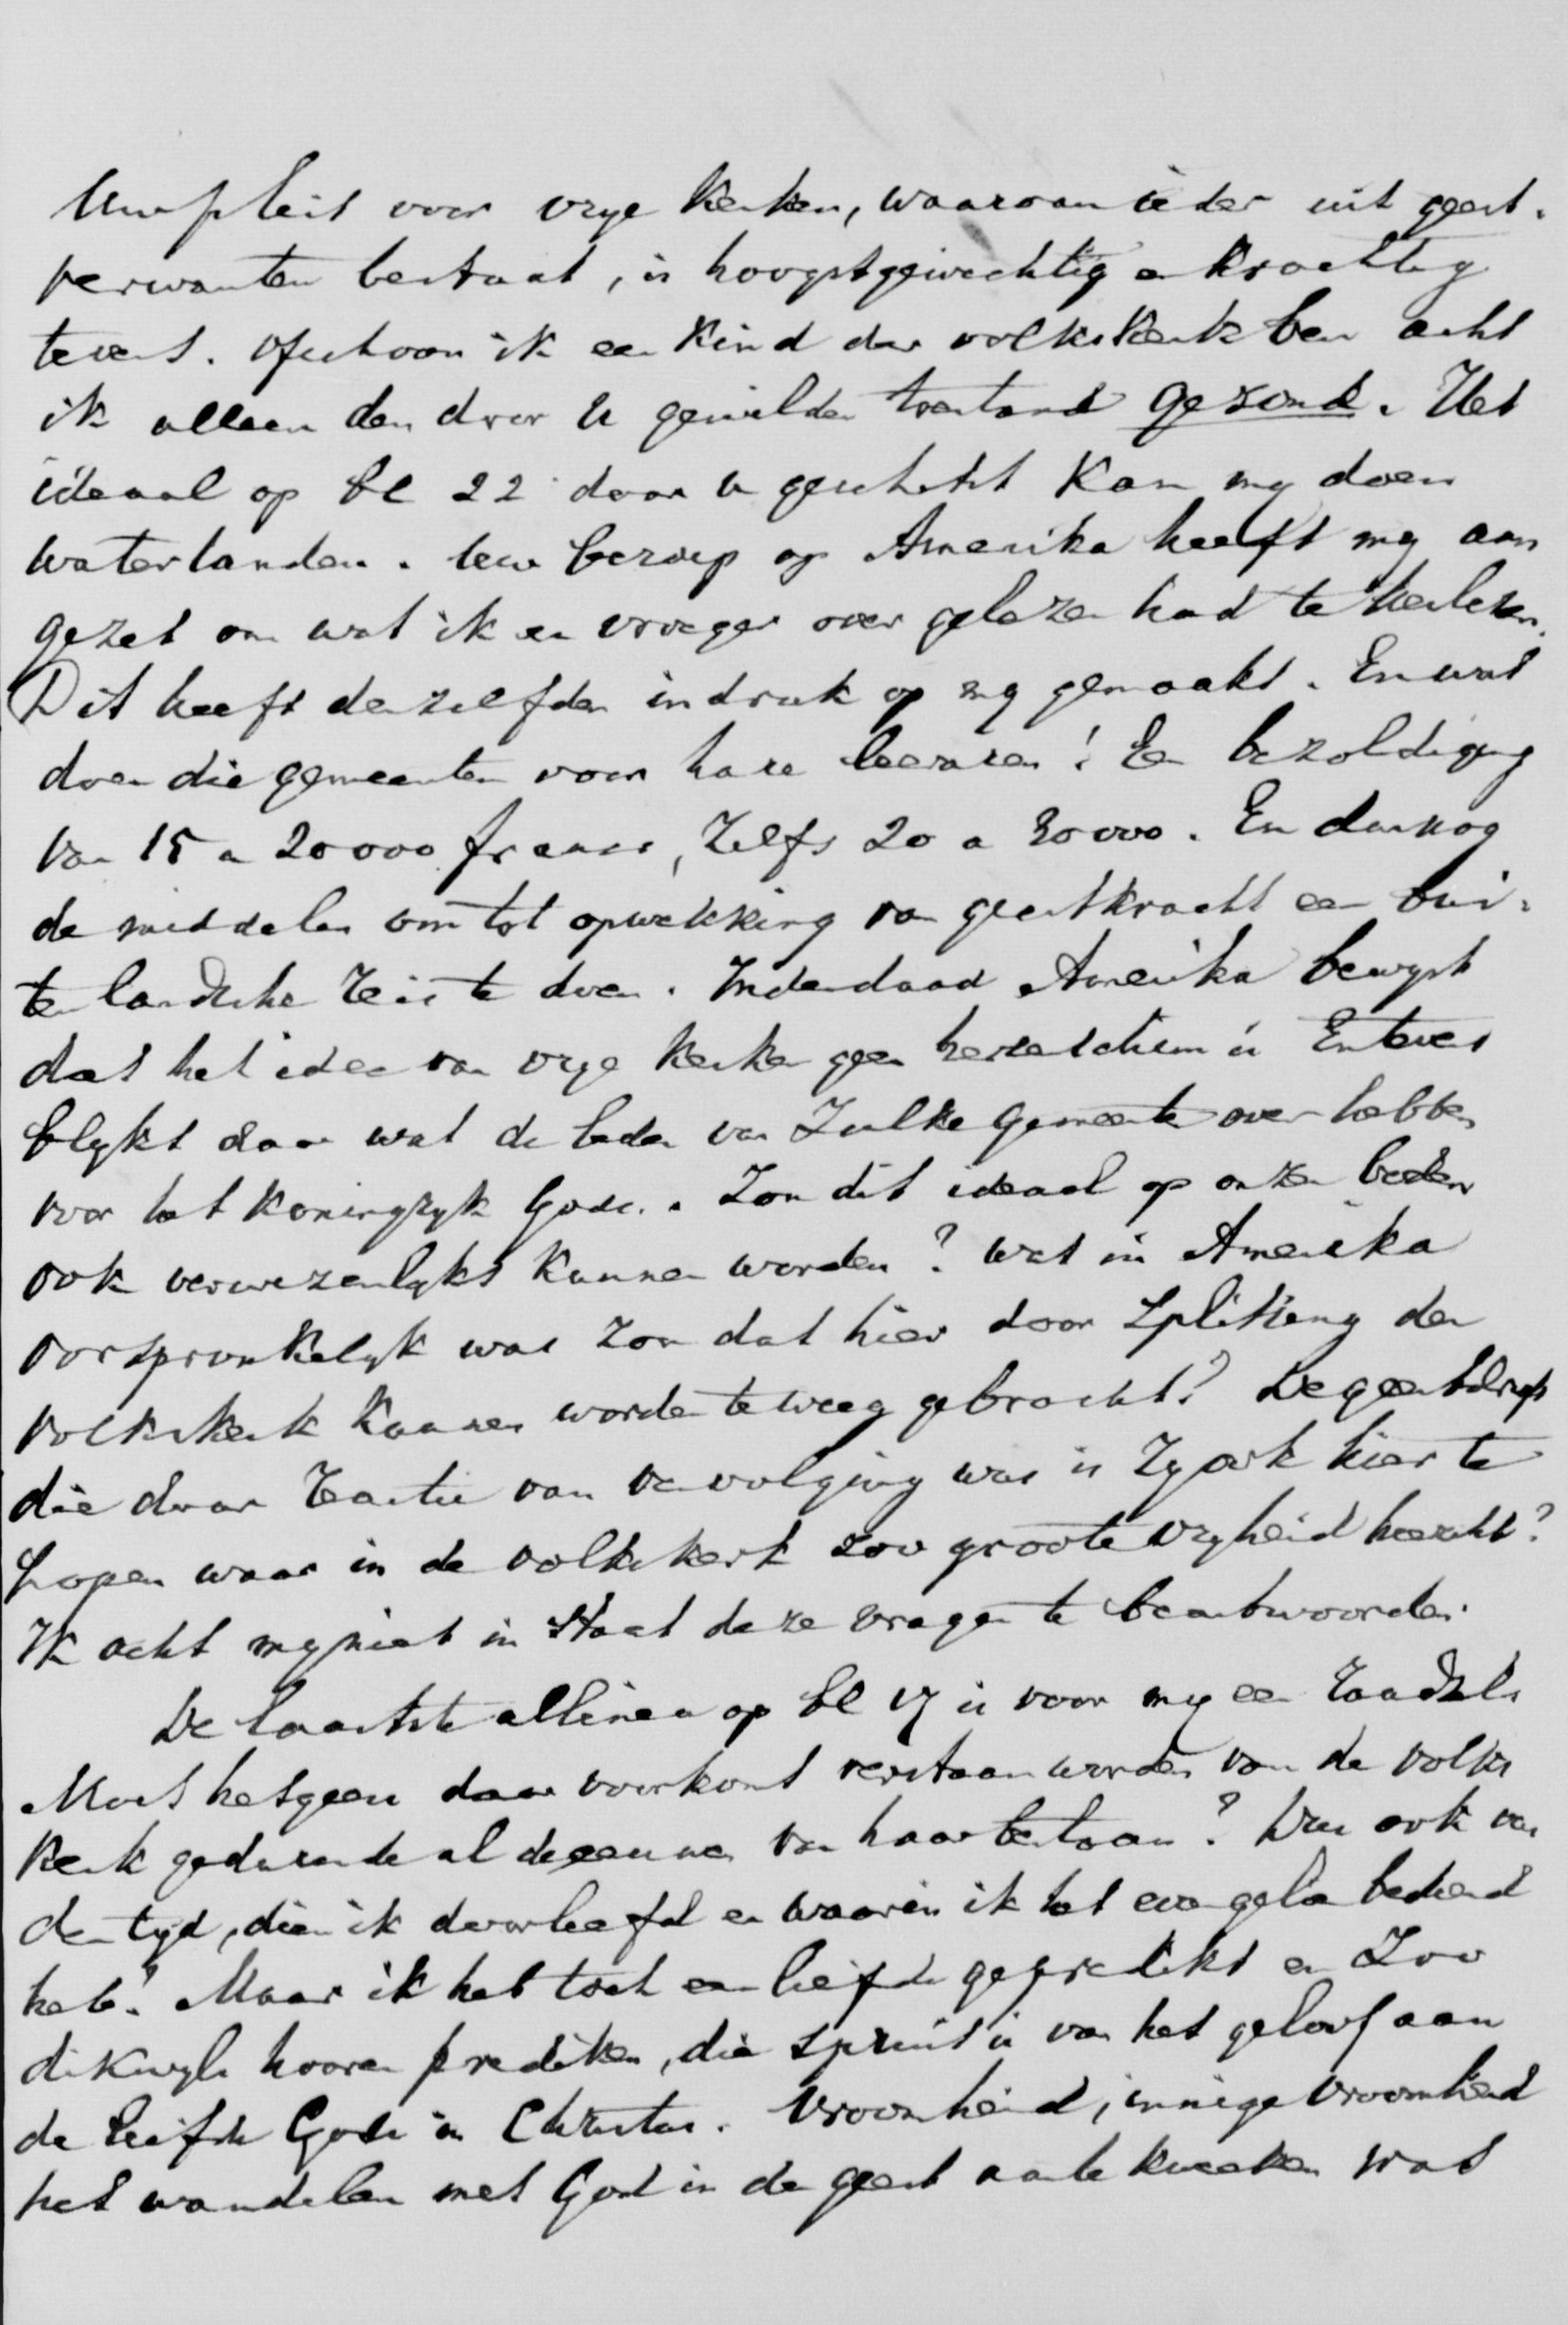 Uw pleit voor vrye kerken, waarvan ieder uit geest-
verwanten bestaat, is hoogstgewichtig en krachtig
tevens. Ofschoon ik een kind der volkskerk ben acht
ik alleen den door U gewilden toestand gezond. Het
ideaal op bl 22 door u geschetst kan my doen
watertanden. Uw beroep op Amerika heeft my aan
gezet om wat ik er vroeger over gelezen had te herlezen.
Dit heeft denzelfden indruk op my gemaakt. En wat
doen die gemeenten voor hare leeraren! Een bezoldiging
van 15 a 20000 francs, zelfs 20 a 30000. En dan nog
de middelen om tot opwekking van geestkracht een bui-
tenlandsche reis te doen. Inderdaad Amerika bewyst
dat het idee van vrye kerken geen hersenschim is En tevens
blykt daar wat de leden van zulke gemeenten over hebben
voor het koningryk Gods. Zou dit ideaal op onzen bodem
ook verwezenlykt kunnen worden? Wat in Amerika
oorspronkelyk was zou dat hier door splitsing der
volkskerk kunnen worden te weeg gebracht? De geestdrift
die daar reactie van vervolging was is zy ook hier te
hopen waar in de volkskerk zoo groote vryheid heerscht?
Ik acht my niet in staat deze vragen te beantwoorden.
De laatste allinea op bl 17 is voor my een raadsel.
Moet hetgeen daar voorkomt verstaan worden van de volks
kerk gedurende al de eeuwen van haar bestaan? Dus ook van
den tyd, dien ik doorleefd en waarin ik het evangelie bediend
heb? Maar ik heb toch een liefde gepredikt en zoo
dikwyls hooren prediken, die spruit is van het geloof aan
de liefde Gods in Christus. Vroomheid, innige vroomheid
het wandelen met God in de geest aan te kweeken was